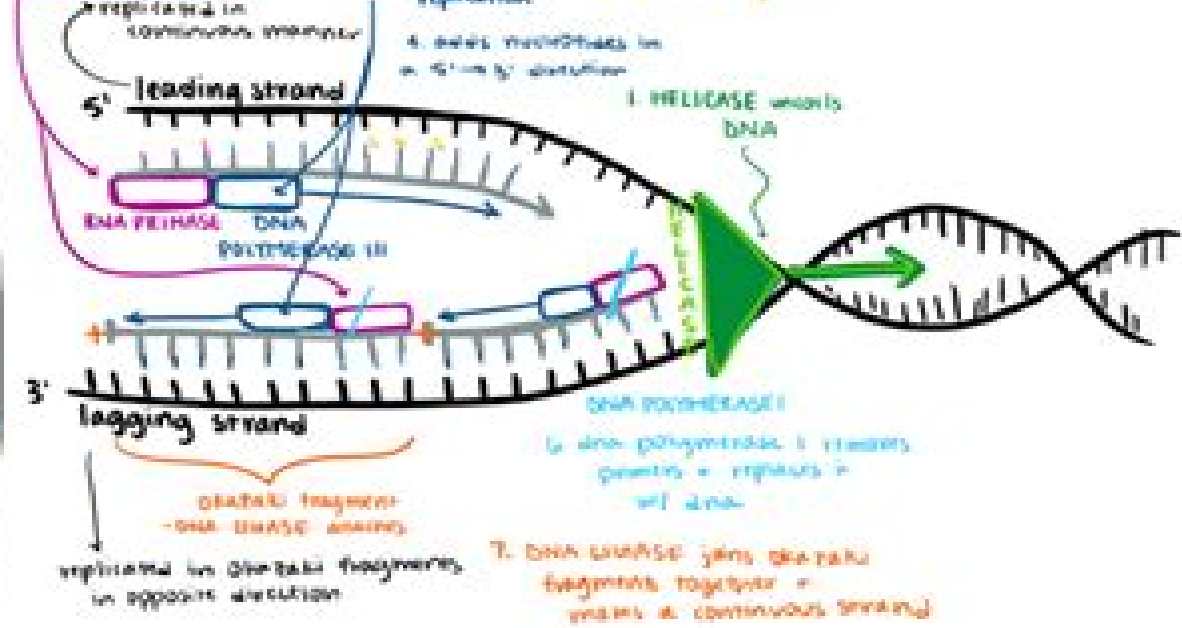 replicated in
continuous manner
replication
4. adds nucleotides in
a 5' → 3' direction
leading strand
5'
1. HELICASE uncoils
DNA
RNA PRIMASE
DNA
POLYMERASE III
3'
lagging strand
DNA POLYMERASE I
6. dna polymerase I removes
primers + replaces it
w/ dna
okazaki fragment
-DNA LIGASE
replicated in Okazaki fragments
in opposite direction
7. DNA LIGASE joins okazaki
fragments together +
makes a continuous strand